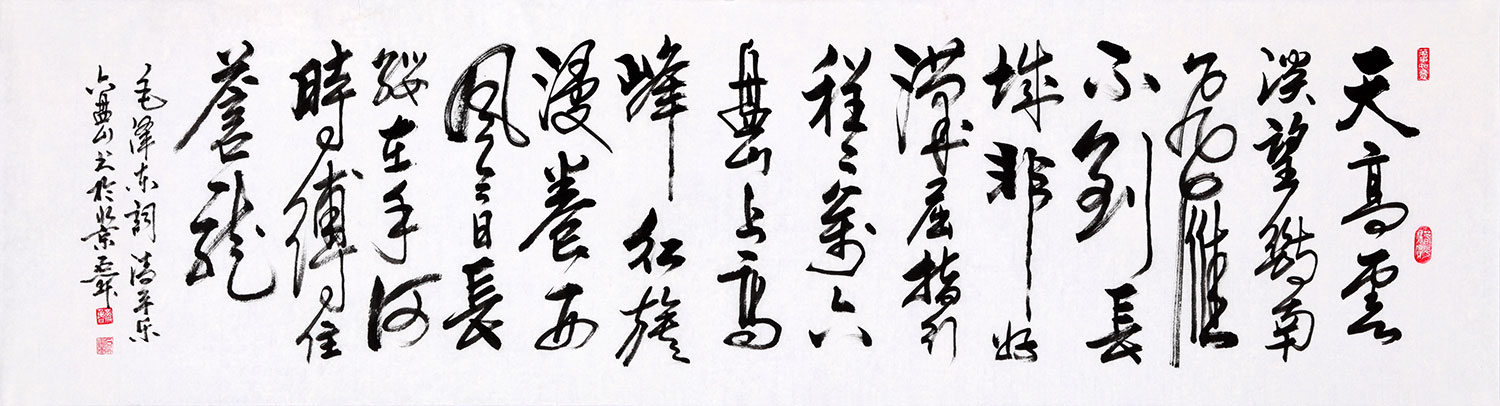 天高雲
淡望斷南
飛雁
不到長
城非好
漢屈指行
程二萬六
盘山上高
峰红旗
漫卷西
風今日長
缨在手何
時縛住
蒼龍
毛泽东詞清平乐
六盘山书於北京